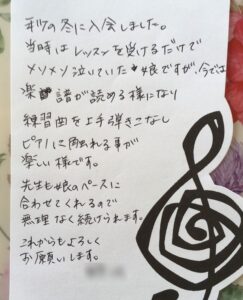 の冬に入会しました。
当時はレッスンを受けるだけで
メソメソ泣いていた娘ですが、今では
楽譜が読める様になり
練習曲を上手弾きこなし
ピアノに触れる事が
楽しい様です。
先生も娘のペースに
合わせてくれるので
無理なく続けられます。
これからもよろしく
お願いします。